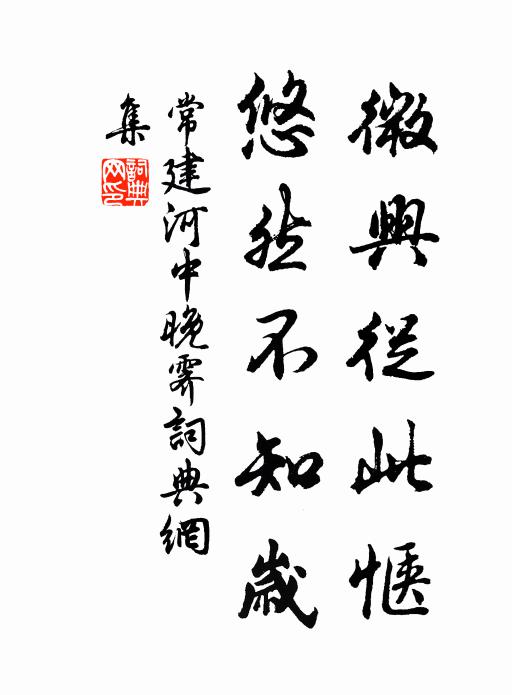 微興從此愜
悠然不知歲
常建河中晚霽詞典網
集
詞典網印